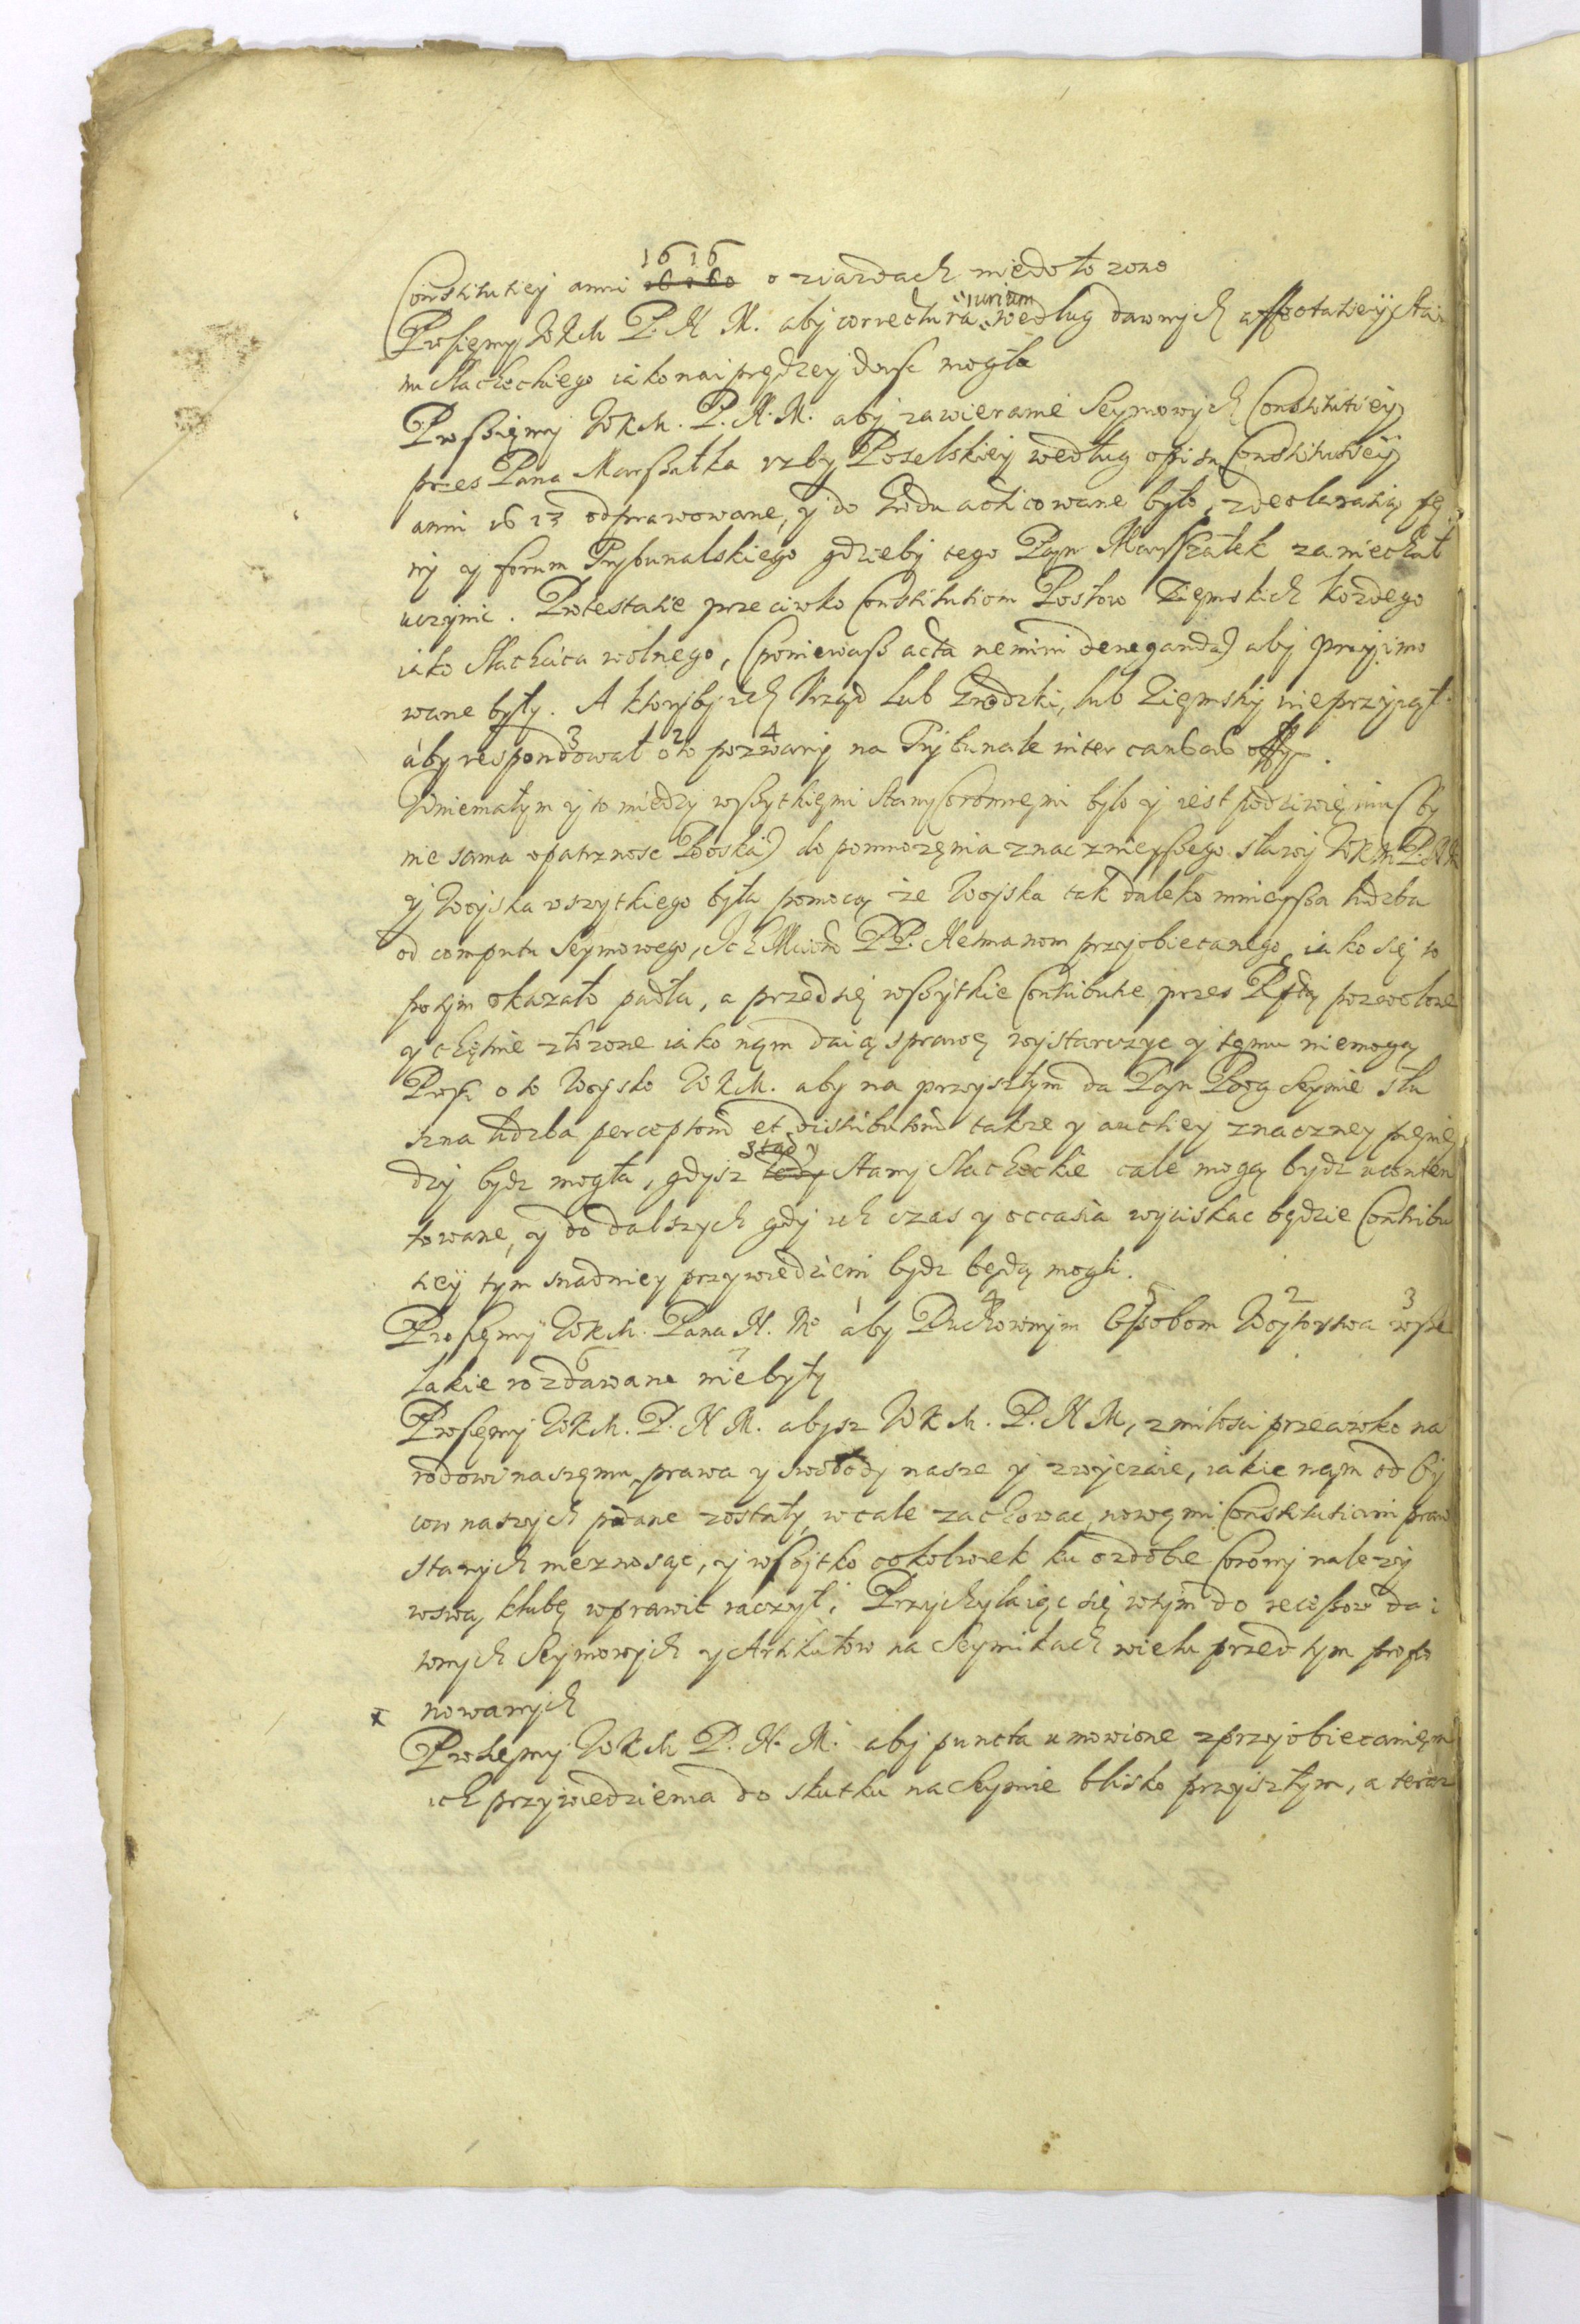 1616
Constitutiey anni o ziazdach niedołozono
iurium
Prosięmy WKM P. N. M. aby correctura według dawnych affectatieÿ sta
nu slacheckiego iako naiprędzey dojsc mogła
Prossięmy WKM. P. N. M. aby zawieranie Seymowych Constitutiey
przes Pana Marszałka yzby Poselskiey według opisu Constitutieÿ
anni 1613 odprawowane, y do Grodu acticowane było, z declaratią pę
ny y forum Trybunalskiego gdzieby tego Pan Marszałek zaniechał
uczynic. Protestatie przeciwko Constitutiom Posłow Zięmskich kozdego
iako slachcica wolnego, (poniewasz acta nemini deneganda) aby przyimo
wane były. A ktoryby ich Vrząd lub Grodzki, lub Zięmsky nieprzyiął
3 2 4
aby respondował oto pozwany na Trybunale inter causas offy.
Wniemałym y to miedzy wszytkięmi stany Coronnęmi było y iest podziwięniu (by
nie sama opatrznosc Boska) do pomnozęnia znacznieyszego sławy WKM P. N
y Woyska wszytkiego była pomocą ze Woyska tak daleko mnieysza liczba
od computu Seymowego, Ich Mciom PP. Hetmanom przyobiecanego, iako się to
potym okazało padła, a przedsię wszytkie Contributie przes Rptą pozwolone
y chętnie złozone iako nąm daią sprawę wystarczyc y tęmu niemogą
Prosi o to Woysko WKM. aby na przyszłym da Pan Boog Seymie słu
szna liczba perceptorũ et distributorũ takze y auctiey znaczney pięnię
stąd y
dzy bydz mogła, gdysz tedy stany slacheckie cale mogą bydz uconten
towane, y do dalszych gdy ich czas y occasia wyciskac będzie Contribu
tieÿ tym snadniey przywiedzieni bydz będą mogli.
1 4 5 2 3
Prosięmy WKM. Pana N. Mo aby Duchownym Osobom Woytostwa wsze
6 7
lakie rozdawane niebyły
Prosięmy WKM. P. N M. abysz WKM. P. N M, z miłosci przeciwko na
rodowi naszęmu prawa y swobody nasze y zwyczaie, iakie nąm od oy
cow naszych podane zostały, wcale zachowac, nowęmi Constitutiami praw
starych nieznosząc, y wszytko cokolwiek ku ozdobie Corony nalezy
wswą klubę wprawic raczył; Przychylaiąc się wtym do recessow da
wnych Seymowych y Artikułow na Seymikach wielu przed tym propo
x nowanych
Prosięmy WKM P. N. M. aby puncta umowione z przyobiecanięm
ich przywiedzienia do skutku na Seymie blisko przyszłym, a teraz